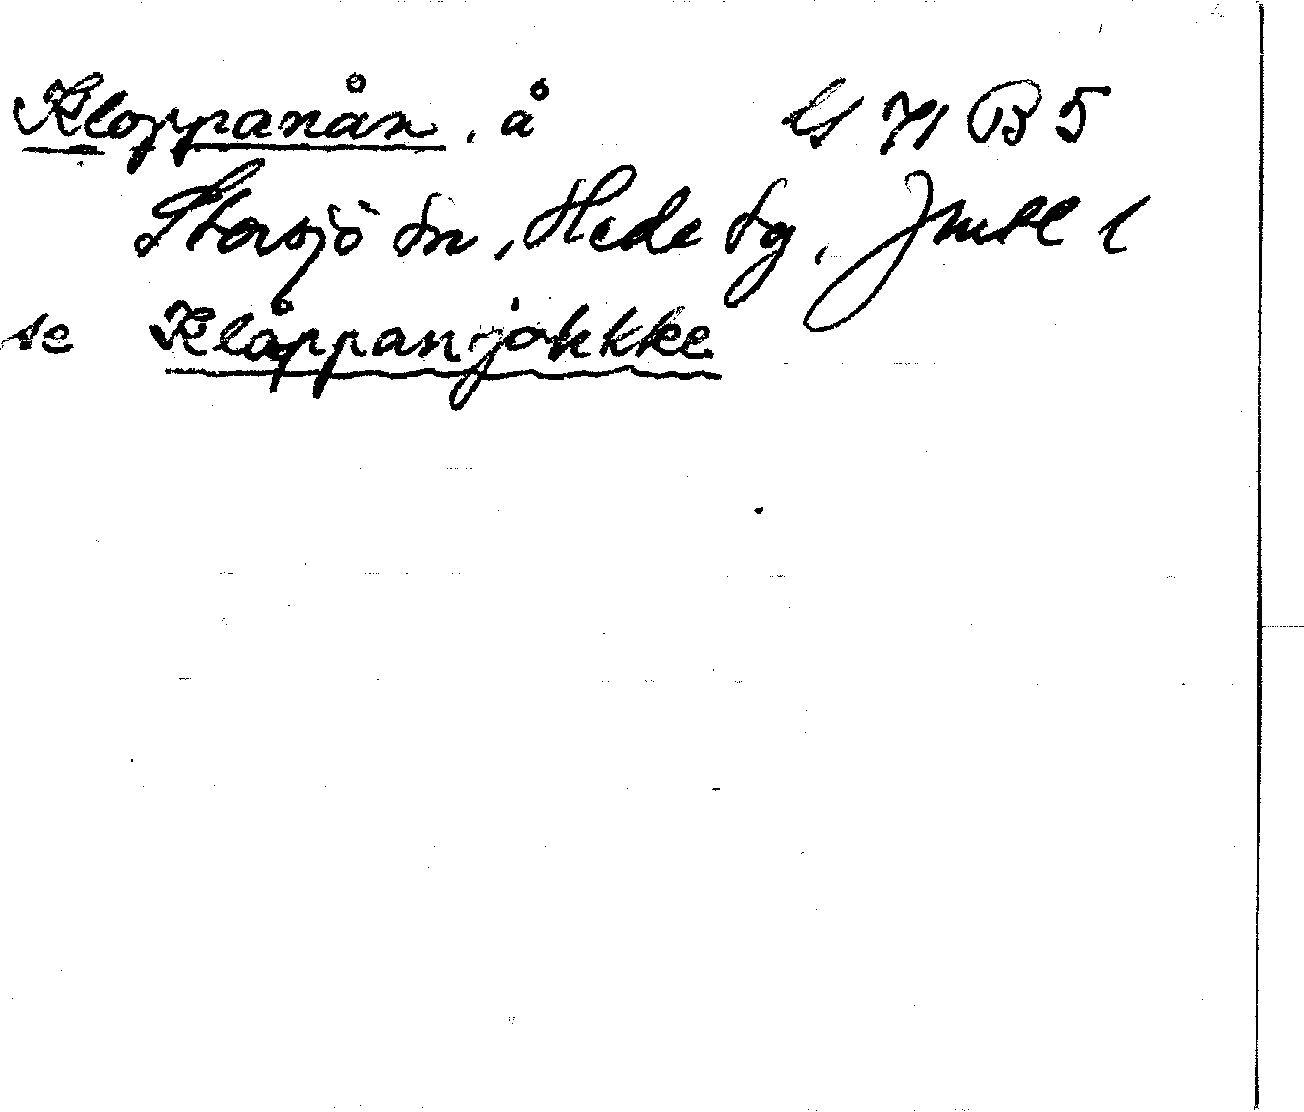 Kloppanån, å
Storsjö sn, Hede tg, Jmtl l
se Klåppanjåhkke